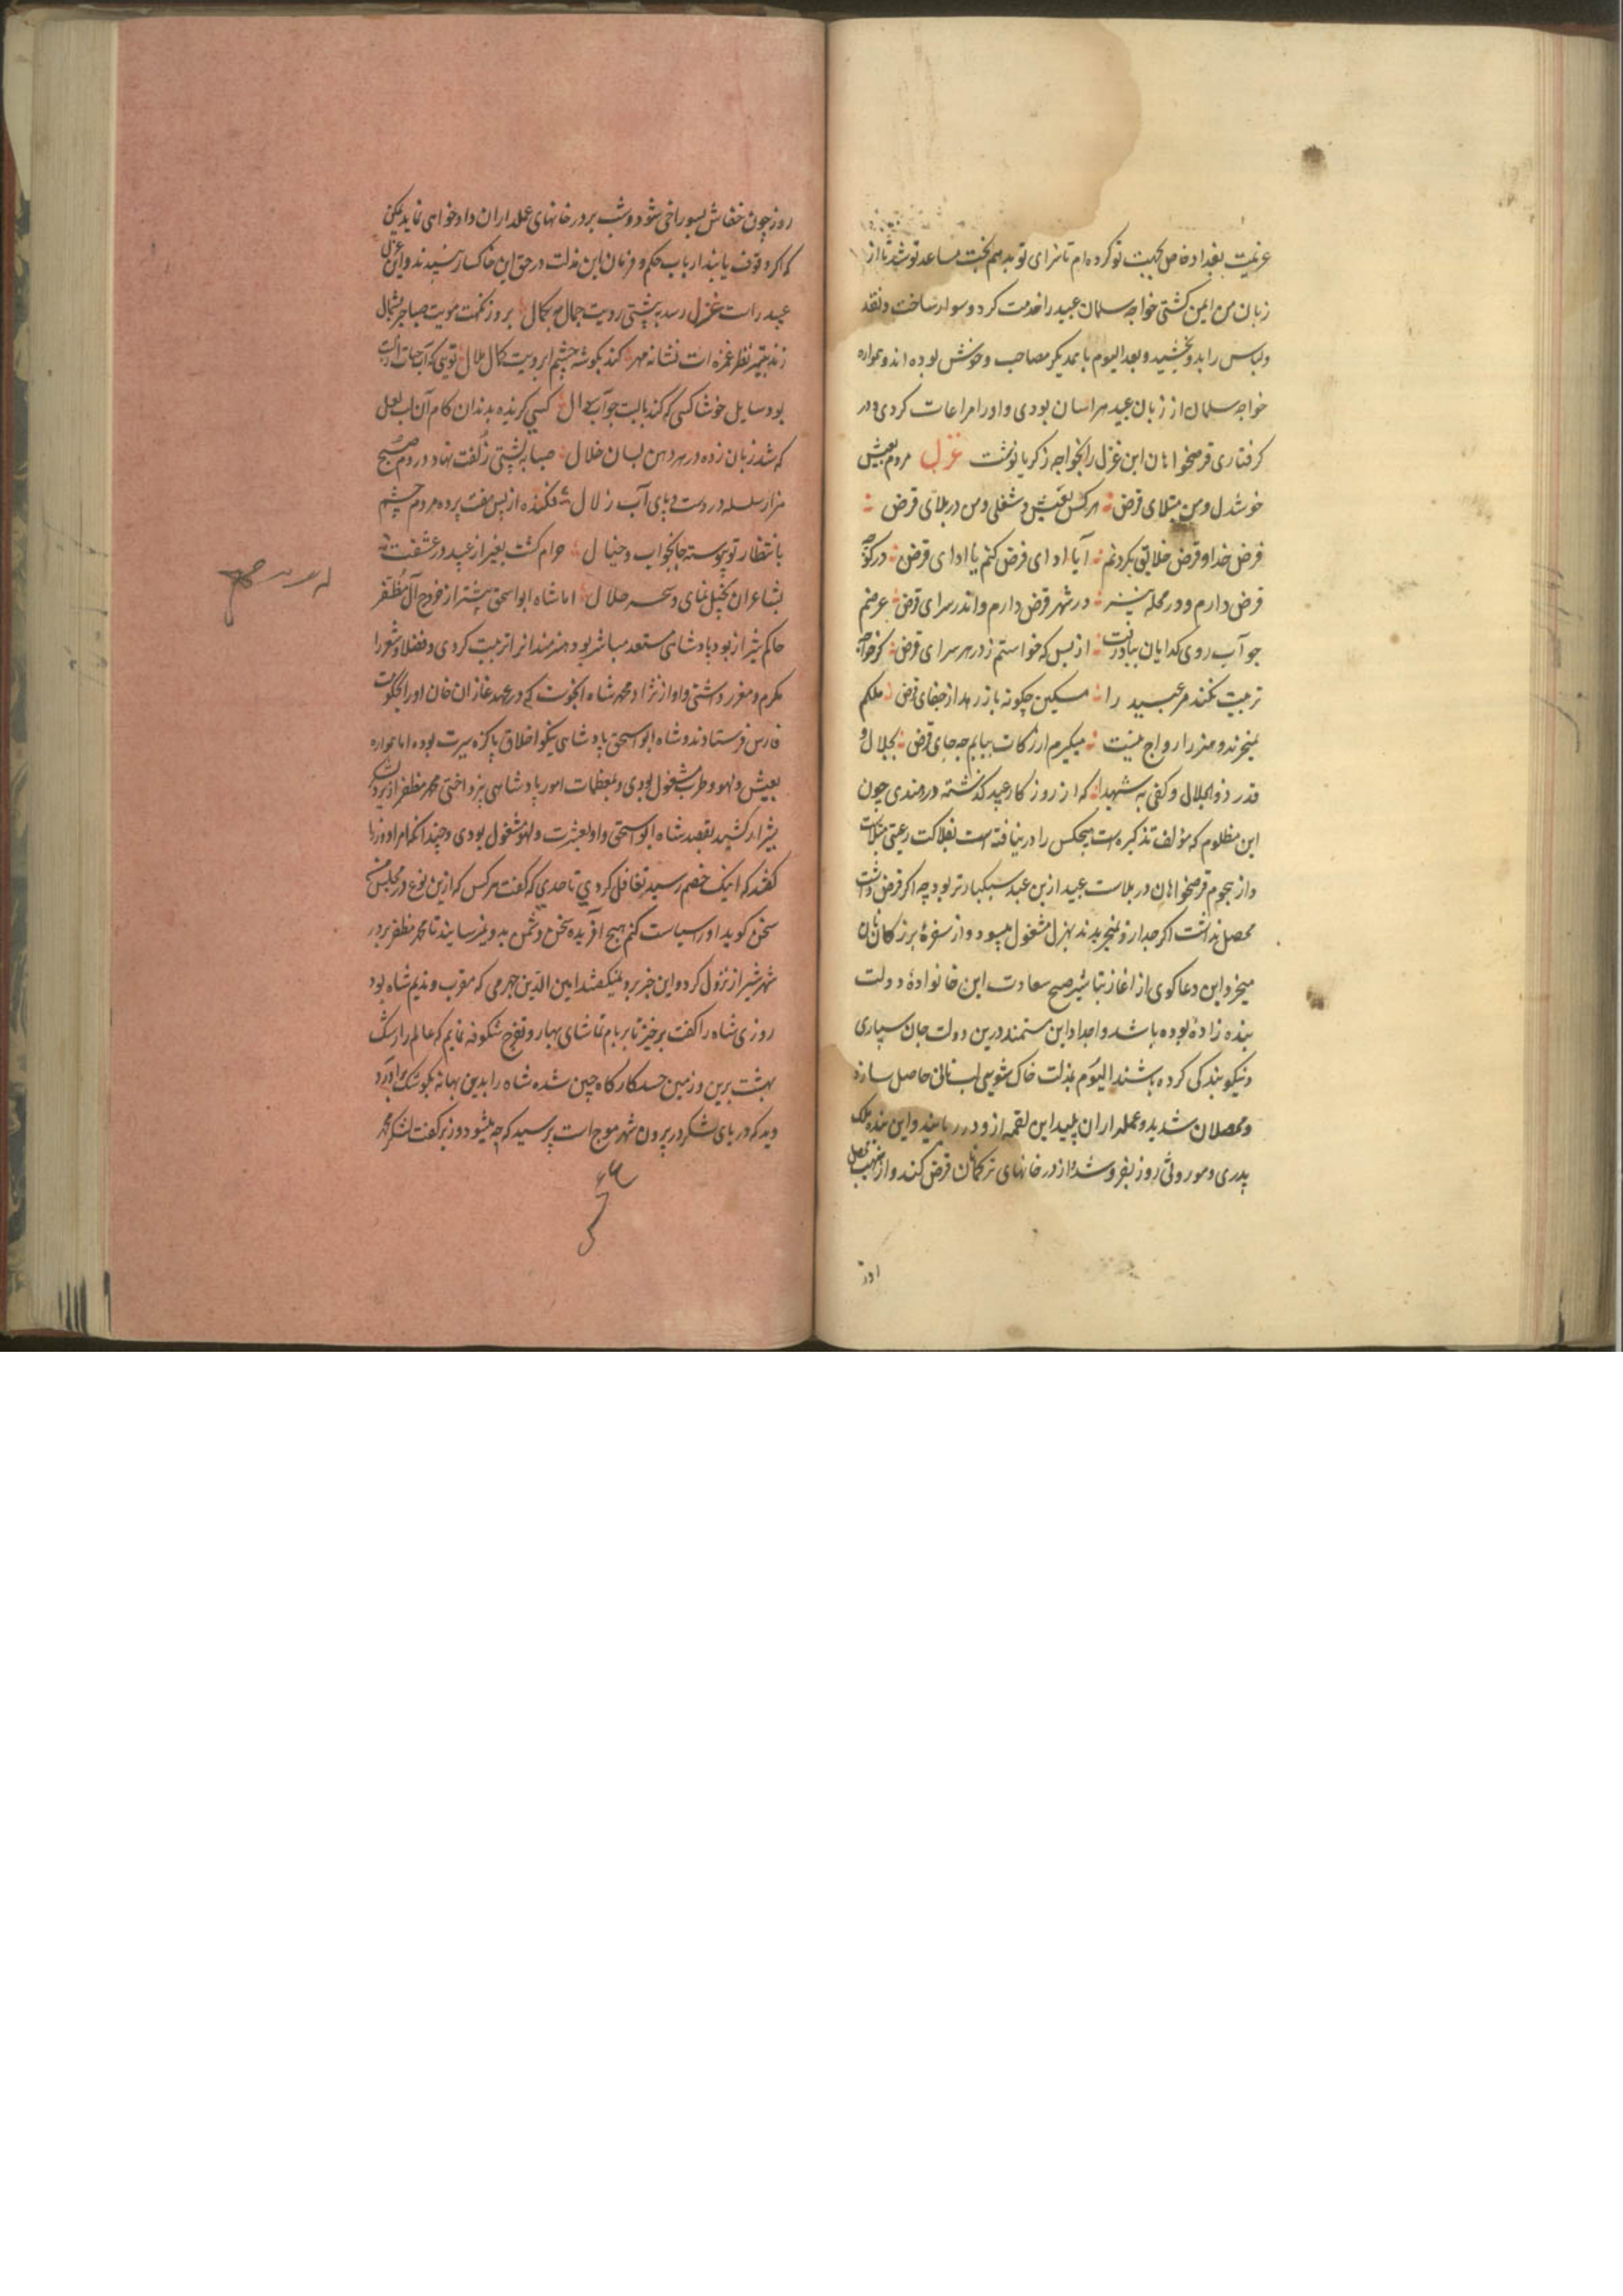 عزیمت بغداد خاص بجهت تو کرده ام تا سزای تو بدهم بخت مساعد تو شد تا از
زبان من ایمن گشتی خواجه سلمان عبید را خدمت کرد و سوار ساخت و نقد
و لباس را بدو بخشید و بعد الیوم با همدیگر مصاحب و خوش بوده اند و همواره
خواجه سلمان از زبان عبید هراسان بودی و او را مراعات کردی و در
کرفتاری قرضخواهان این غزل را بخواجه زکریا نوشت غزل مردم بعیش
خوشدل و من مبتلای قرض هر کس بعیش و شغلی و من در بلای قرض
فرض خدا و قرض خلایق بکردنم آیا ادای فرض کنم یا ادای قرض در کوچه
قرض دارم و در محله نیز در شهر قرض دارم و اندر سرای قرض عرضم
جو آب روی کدایان بباد رفت از بس که خواستم ز در هر سرای قرض کر خواجه
تربیت نکند مر عبید را مسکین چکونه باز رهد از جفای قرض ملکم
نمیخرند و هنر را رواج نیست میکیرم ار زکات بیابم بجای قرض بجلال و
قدر ذو الجلال و کفی به شهیدا که از روز کار عبید کذشته دردمندی چون
این مظلوم که مؤلف تذکره است هیچکس را در نیافته است بفلاکت رعیتی مبتلاست
و از هجوم قرضخواهان در بلاست عبید ازین عبد سبکبارتر بود چه اکر قرض داشت
محصل نداشت اکر جد ازو نمیخریدند بهزل مشغول میبود و از سفرهٔ بزرکان نان
میخورد و این دعا کوی از اغاز تباشیر صبح سعادت این خانوادهٔ دولت
بنده زادهٔ بوده باشد و اجداد این مستمند درین دولت جان سپاری
و نیکو بندکی کرده باشند الیوم بمذلت خاک شویی لب نانی حاصل سازد
و محصلان شدید و عملداران پلید این لقمه ازو در ربایند و این بنده ملک
پدری و موروثی روز بفروشد از در خانهای ترکمانان قرض کند و از نهیب محصل
روز چون خفاش بسوراخی شود و شب بر در خانهای عملداران دادخواهی نماید یمکن
که اکر وقوف یابند ارباب حکم و فرمان این مذلت در حق این خاکسار نپسندند و این غزل
عبید راست غزل رسد بپشتی رویت جمال مه بکمال برد ز نکهت مویت صبا جر بشمال
زند بتیر نظر غمزه ات نشانه مهر کند بکوشه چشم ابرویت کمال هلال تویی که آب حیات از لبت
بود سایل خوشا کسی که کند با لبت جواب سؤال کسی کزیده بدندان کام آن لب لعل
که شد زبان زده در هر دهن بسان خلال صبا بپشتی زلفت نهاد در دم صبح
هزار سلسله در دست و پای آب زلال فکنده از پس هفت پرده مردم چشم
بانتظار تو پیوسته جا بخواب و خیال حرام کشت بغیر از عبید در عشقت
بشاعران تخیل نمای و سحر حلال اما شاه ابو اسحق پیشتر از خروج آل مظفر
حاکم شیراز بود پادشاهی مستعد مباشر بود هنرمندان را تربیت کردی و فضلا و شعرا
مکرم و معزز داشتی و او از نژاد محمد شاه انجوست که در عهد غازان خان او را بحکومت
فارس فرستادند و شاه ابو اسحق پادشاهی نیکو اخلاق پاکزه سیرت بوده اما همواره
بعیش و لهو و طرب مشغول بودی و بمعظمات امور پادشاهی نپرداختی محمد مظفر از یزد لشکر
بشیراز کشید بقصد شاه ابو اسحق و او بعشرت و لهو مشغول بودی و چندانکه امرا و وزرا
کفتند که اینک خصم رسید تغافل کردی تا حدی که کفت هر کس که ازین نوع در مجلس من
سخن کوید او را سیاست کنم هیچ آفریده سخن دشمن بدو نمیرسانیدند تا محمد مظفر بر در
شهر شیراز نزول کرد و این خبر بدو نمیکفتند امین الدین جهرمی که مقرب و ندیم شاه بود
روزی شاه را کفت برخیز تا بر بام تماشای بهار و تفرج شکوفه نمایم که عالم را رشک
بهشت برین و زمین حسد کارکاه چین شده شاه را بدین بهانه بکوشک بر آورد
دید که دریای لشکر در بیرون شهر مواج است پرسید که چه میشود وزیر کفت لشکر محمد